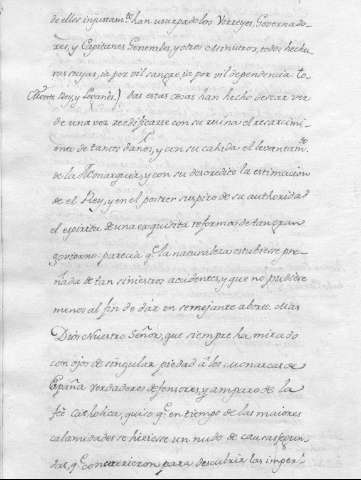 de elles injustam.te han usurpado los Virreyes, Governado-
res, y Capitanes Generales, y otros Ministros, todos hechu
ras suyas, ia por vil sangre, ia por vil dependencia to
(Monte Rey, y Leganés.) das estas cosas han hecho desear ver
de una vez reedificarse con su ruina el resarcimi
ento de tantos daños, y con su cahida el levantam.to
de la Monarquia, y con su descredito la estimacion
de el Rey, y en el postrer suspiro de su authoridad
el espiritu de una exquisita reforma de tan gran
govierno parecia q.e la naturaleza estubiese pre-
ñada de tan siniestros accidentes, y que no pudiese
menos al fin de dár en semejante aborto. Mas
Dios Nuestro Señor, que siempre ha mirado
con ojos de singular piedad á los Monarcas de
España verdaderos defensores, y amparo de la
feé Catholica, quiso q.e en tiempo de las maiores
calamidades se hiciesse un nudo de causas segun
das, q.e concurrieron para descubrir las imper-